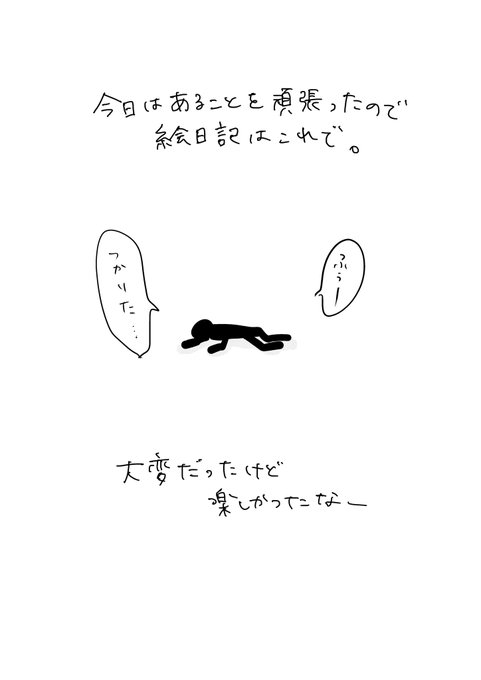 今日はあることを頑張ったので
絵日記はこれで。
ふぅー
つかりた…
大変だったけど
楽しかったなー